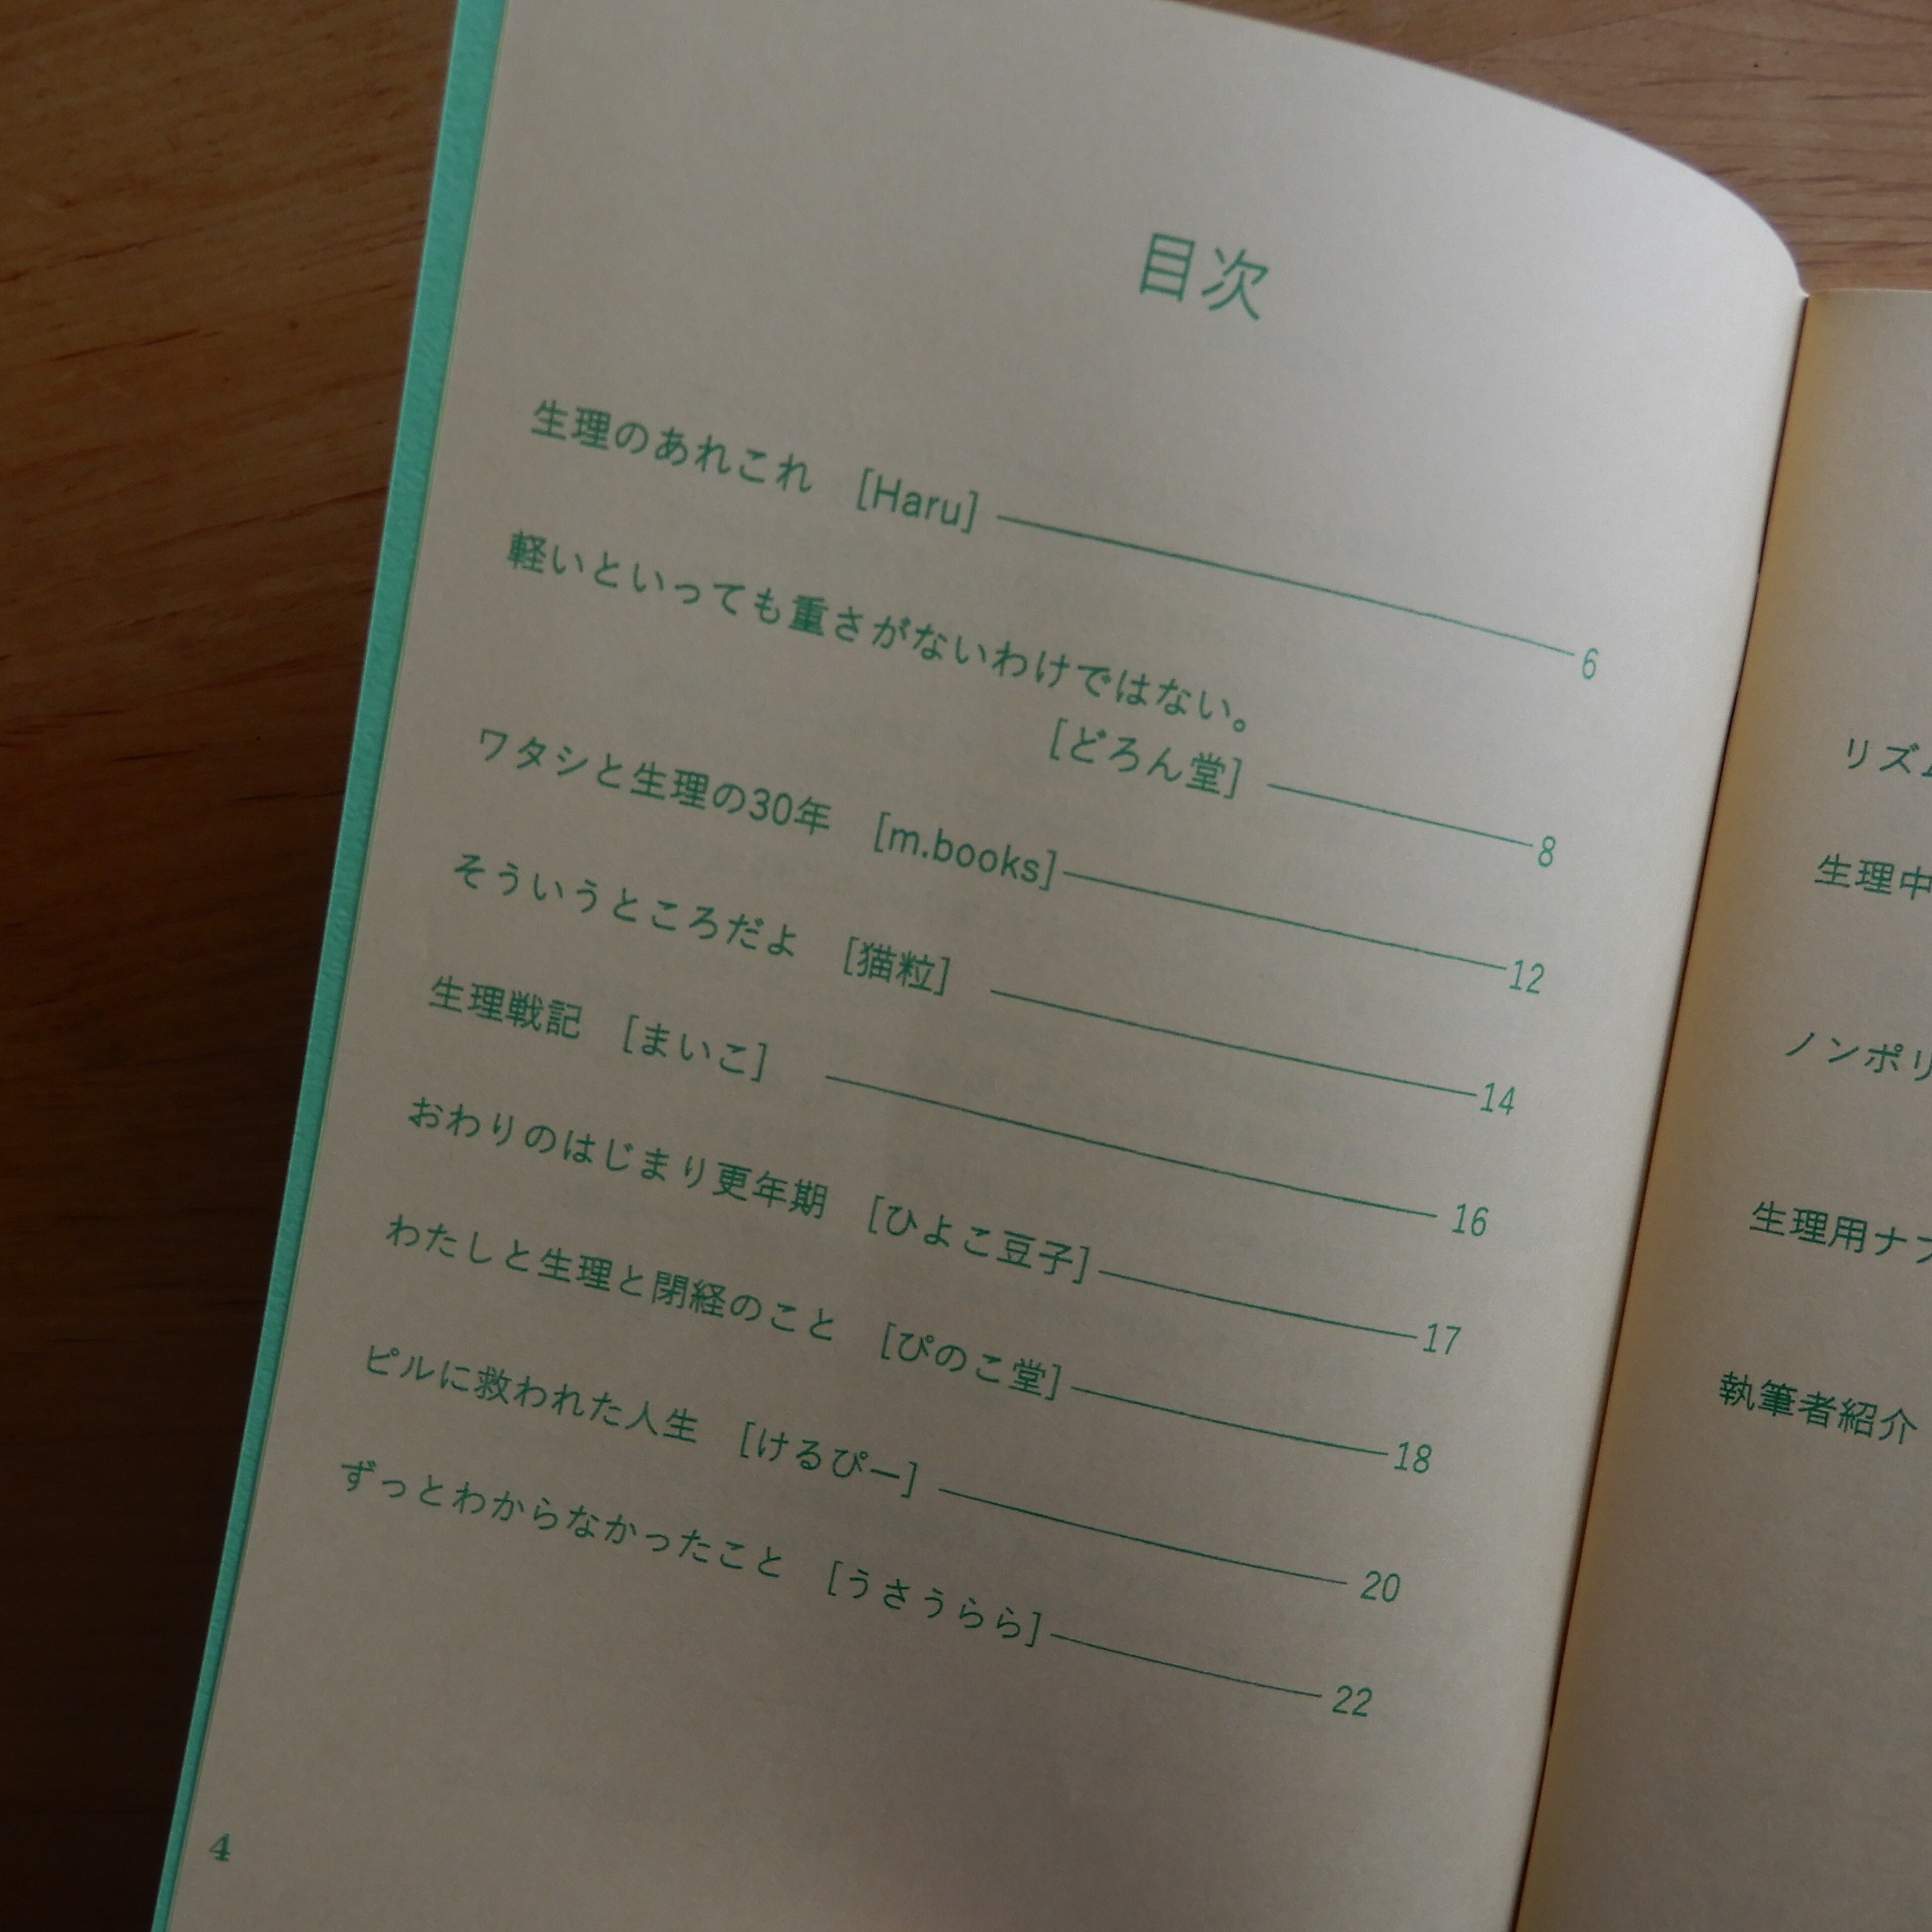 目次
生理のあれこれ [Haru] 6
軽いといっても重さがないわけではない。
[どろん堂] 8
ワタシと生理の30年 [m.books] 12
そういうところだよ [猫粒] 14
生理戦記 [まいこ] 16
おわりのはじまり更年期 [ひよこ豆子] 17
わたしと生理と閉経のこと [ぴのこ堂] 18
ピルに救われた人生 [けるぴー] 20
ずっとわからなかったこと [うさうらら] 22
4
リズム
生理中
ノンポリ
生理用ナプ
執筆者紹介